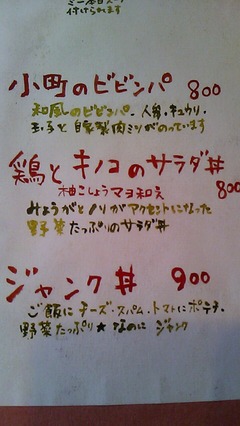 ミニ
付けられます
小町のビビンパ 800
和風のビビンパ、人参、キュウリ、
玉子と自家製肉ミソがのっています
鶏とキノコのサラダ丼
柚こしょうマヨ和え 800
みょうがとノリがアクセントになった
野菜たっぷりのサラダ丼
ジャンク丼 900
ご飯にチーズ・スパム・トマトにポテチ、
野菜たっぷり★なのにジャンク